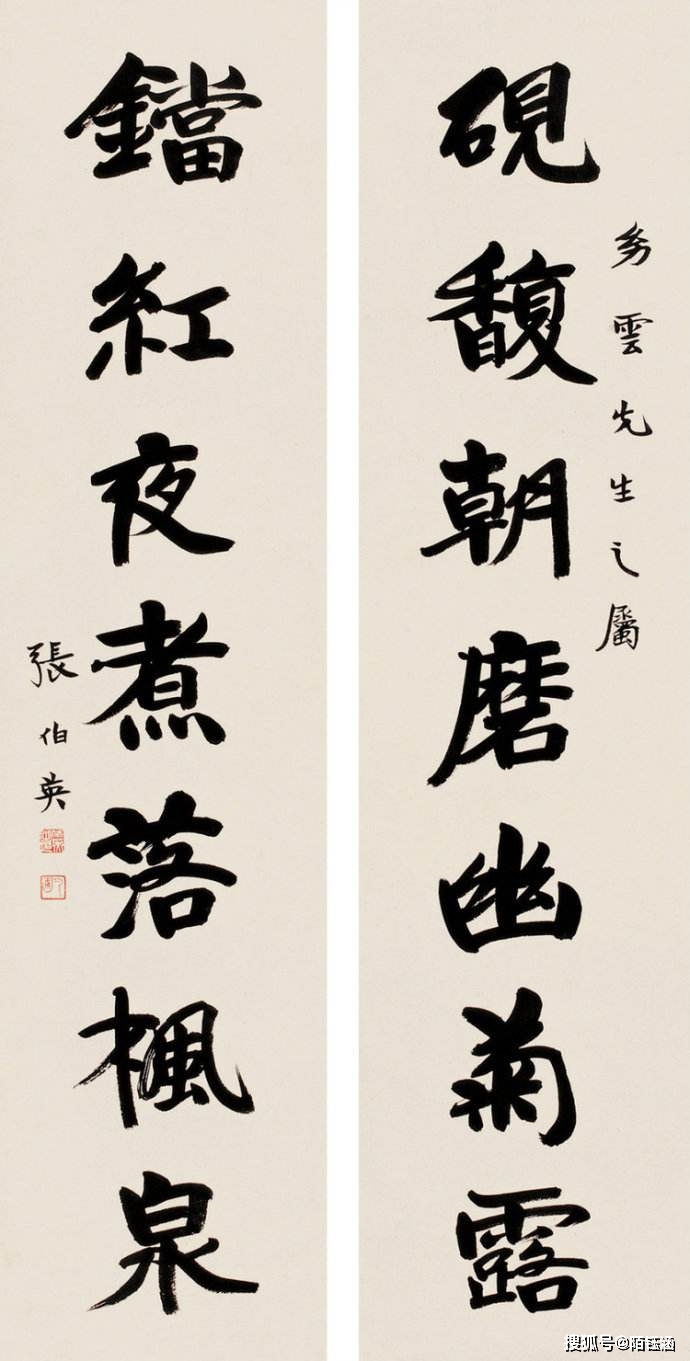 硯馥朝磨幽菊露
雲先生之屬
鐺紅夜煮落楓泉
張伯英
搜狐号@陌钰涵